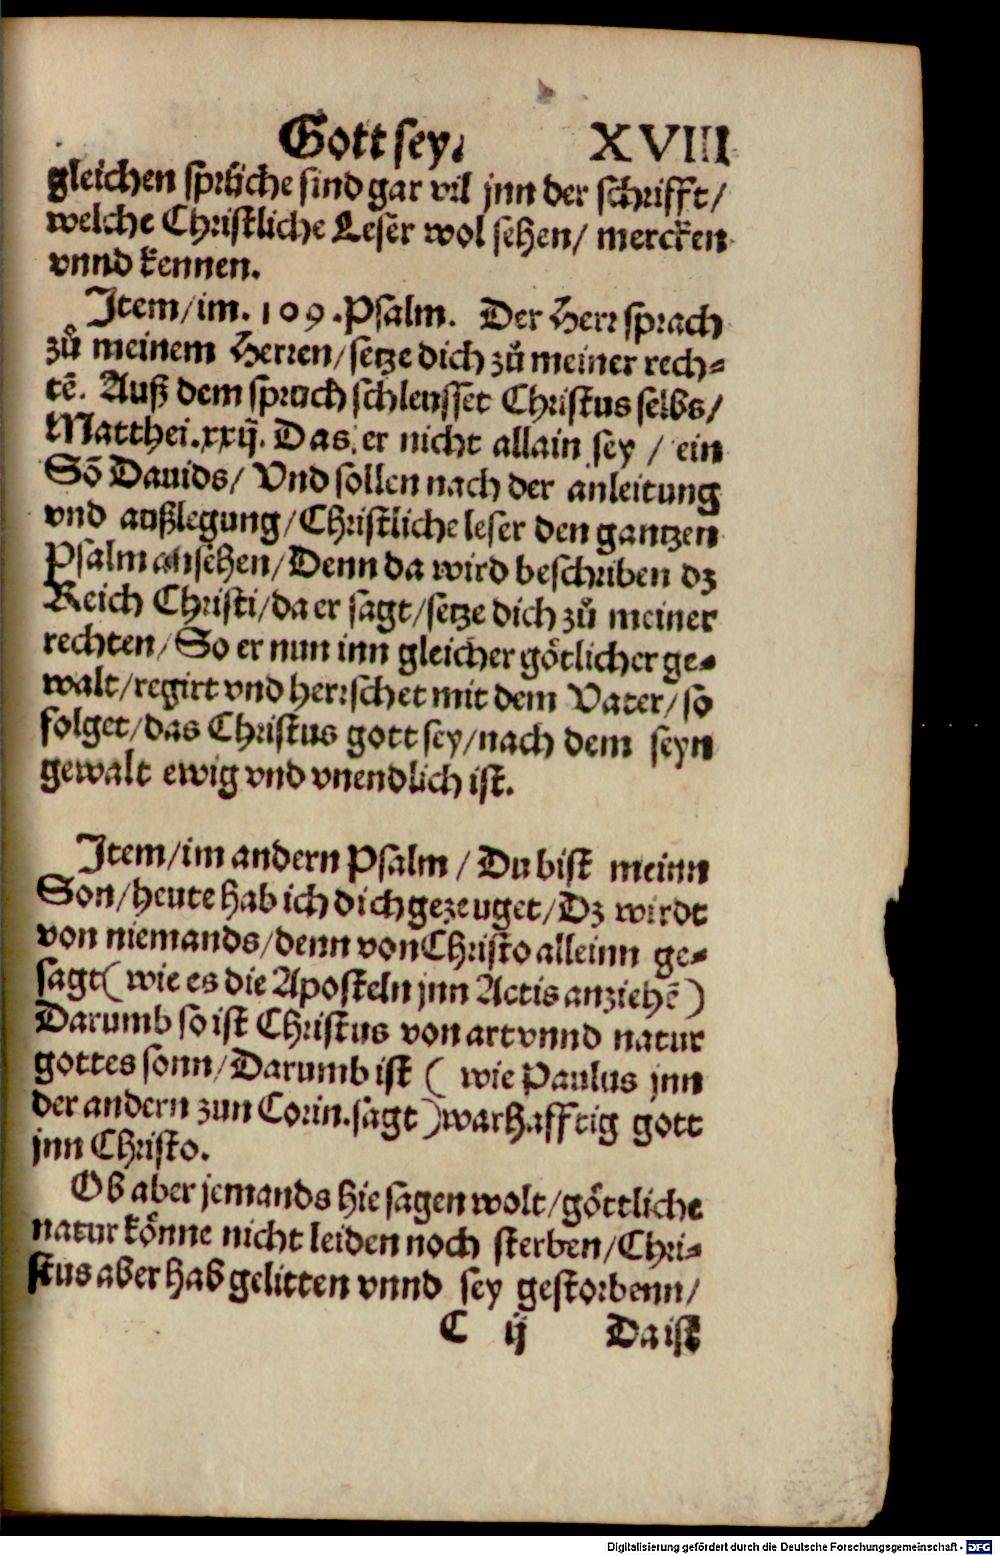 Gott sey. XVIII
gleichen sprüche sind gar vil jnn der schrifft/
welche Christliche Leser wol sehen/ mercken
vnnd kennen.
Item/im. 109. Psalm. Der Herr sprach
zů meinem Herren/setze dich zů meiner rech⸗
tē. Auß dem spruch schleusset Christus selbs/
Matthei.xxij. Das er nicht allain sey / ein
Sō Dauids/ Vnd sollen nach der anleitung
vnd außlegung/Christliche leser den gantzen
Psalm ansehen/Denn da wird beschriben dz
Reich Christi/da er sagt/setze dich zů meiner
rechten/So er nun inn gleicher götlicher ge⸗
walt/regirt vnd herrschet mit dem Vater/so
folget/das Christus gott sey/nach dem seyn
gewalt ewig vnd vnendlich ist.
Item/im andern Psalm / Du bist meinn
Son/heute hab ich dich gezeuget/Dz wirdt
von niemands/denn von Christo alleinn ge⸗
sagt( wie es die Aposteln jnn Actis anziehē )
Darumb so ist Christus von art vnnd natur
gottes sonn/Darumb ist ( wie Paulus jnn
der andern zun Corin. sagt )warhafftig gott
jnn Christo.
Ob aber jemands hie sagen wolt/göttliche
natur könne nicht leiden noch sterben/Chri⸗
stus aber hab gelitten vnnd sey gestorbenn/
C ij Da ist
Digitalisierung gefördert durch die Deutsche Forschungsgemeinschaft - DFG